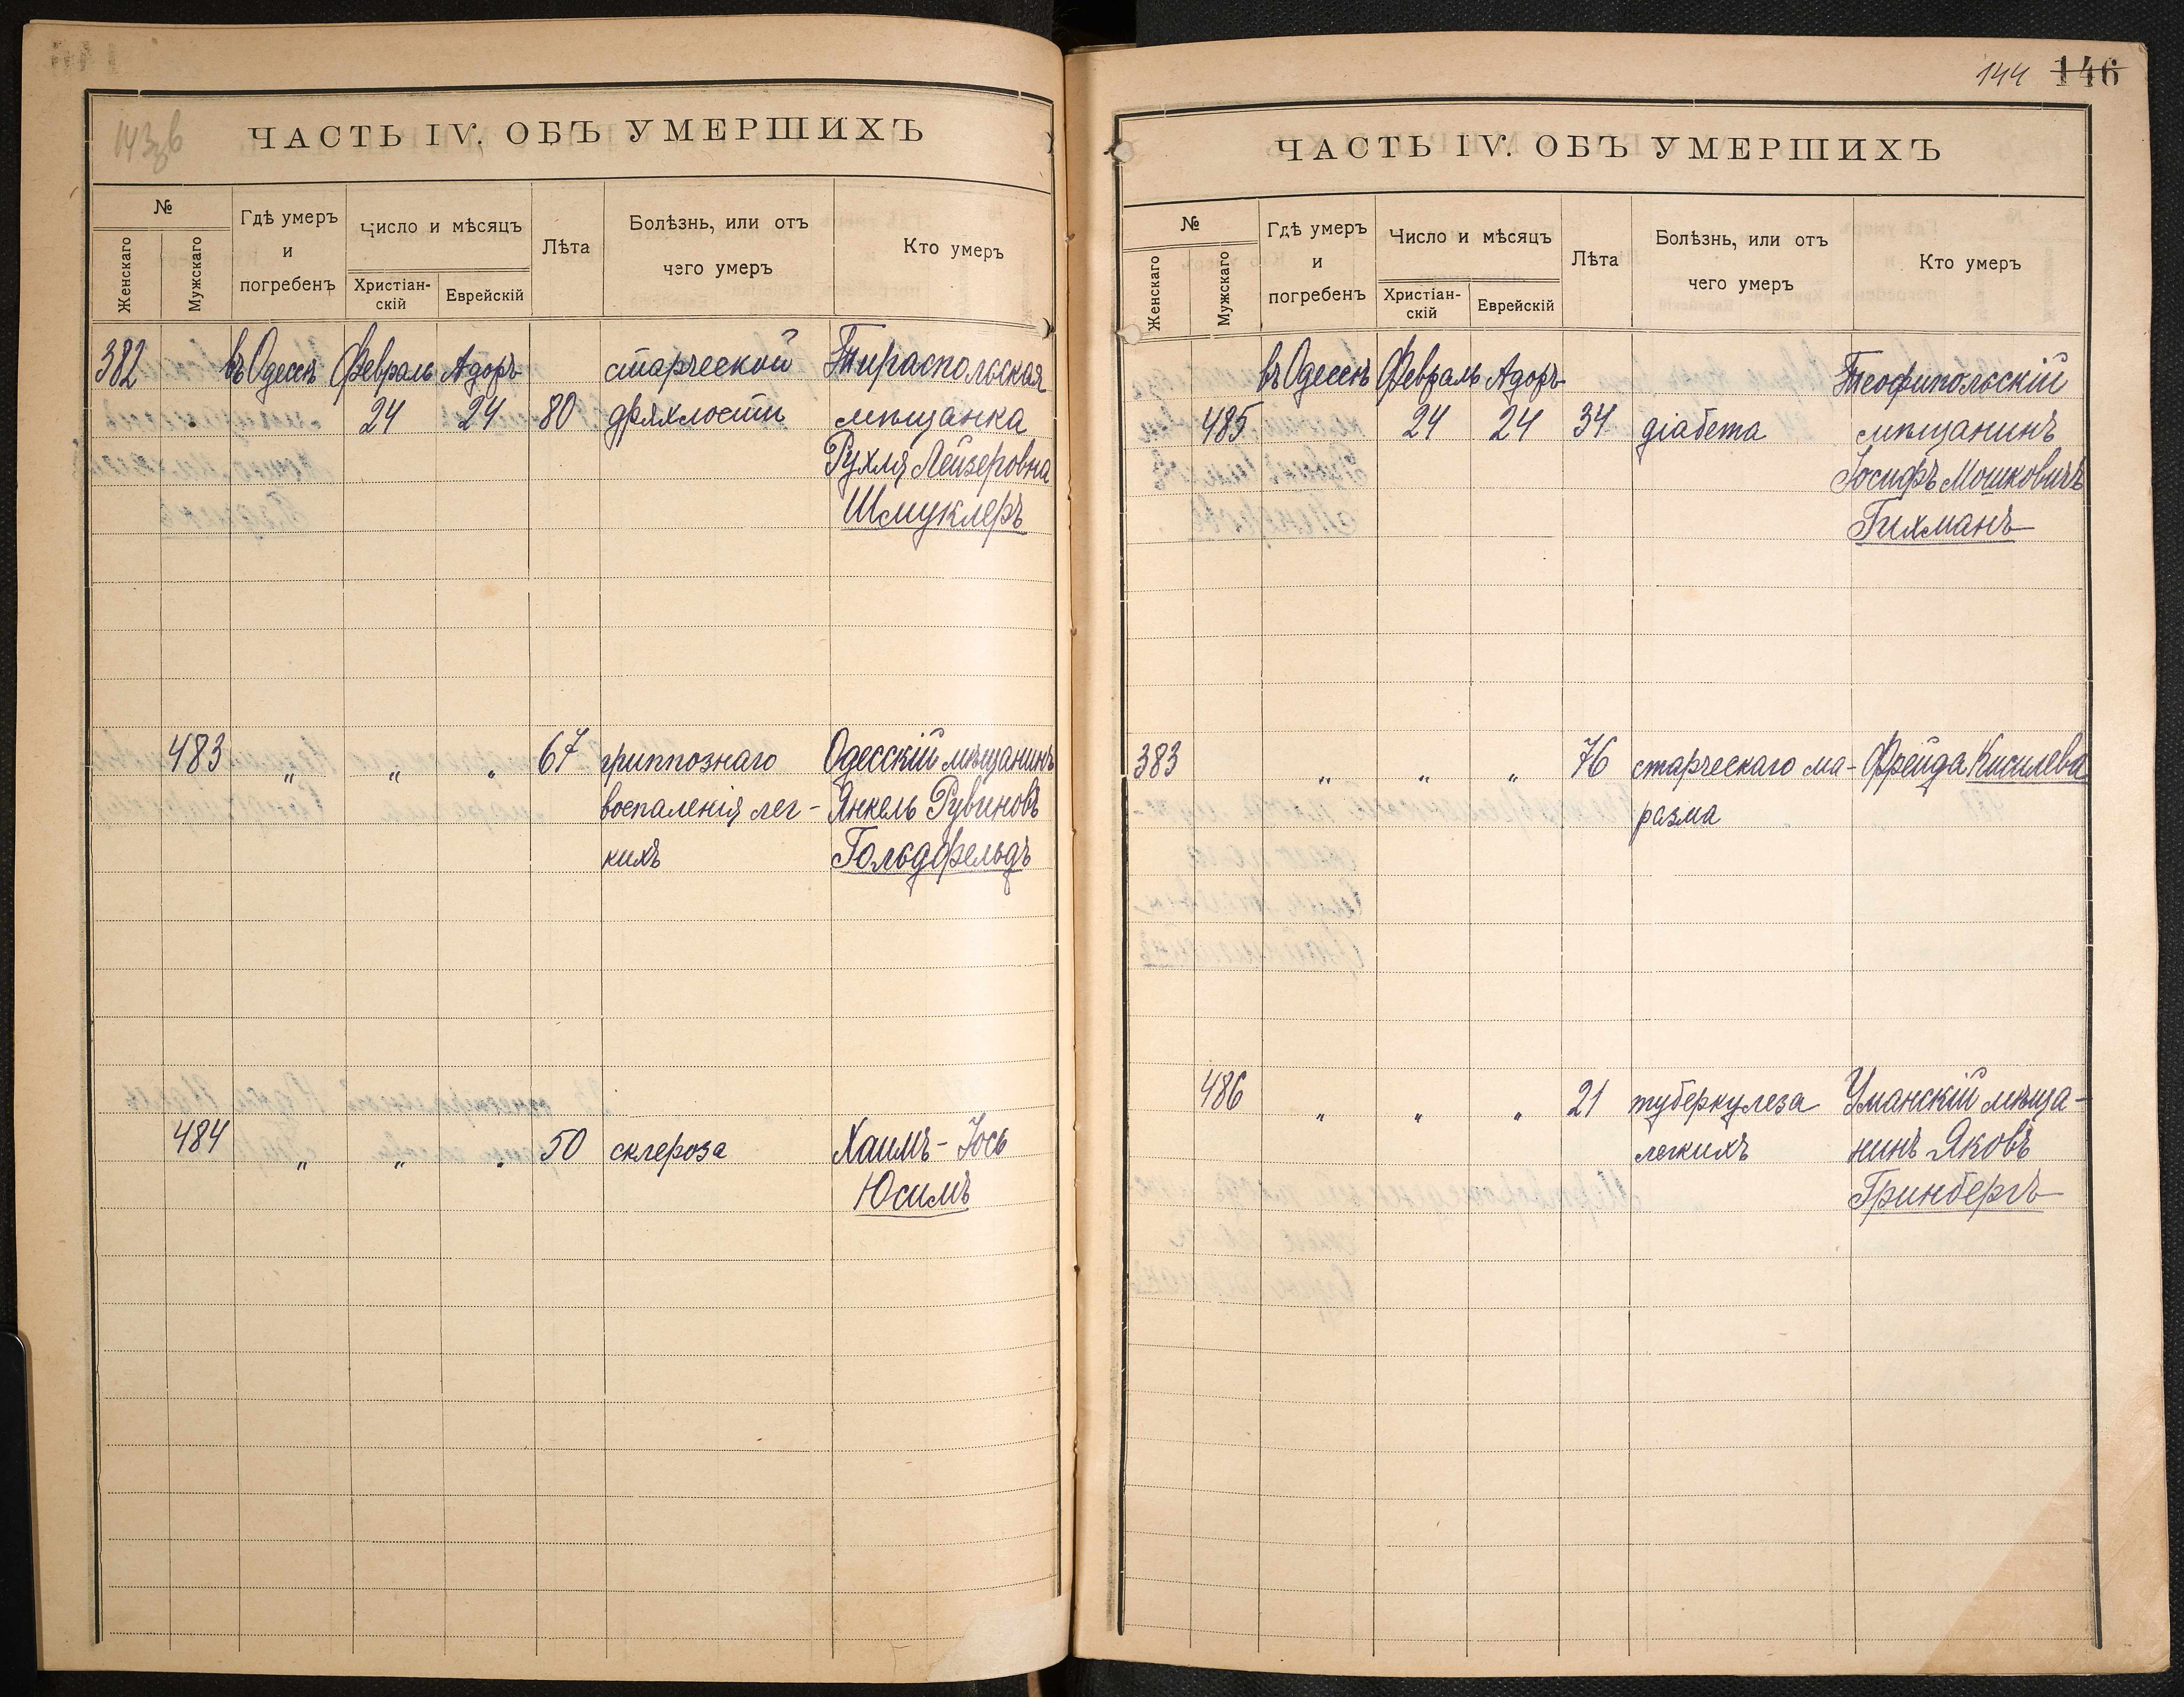 143 зв
ЧАСТЬ IV. ОБЪ УМЕРШИХЪ
№
Женскаго
Мужскаго
Гдѣ умеръ
и
погребенъ
Число и мѣсяцъ
Христіан-
скій
Еврейскій
Лѣта
Болѣзнь, или отъ
чего умеръ
Кто умеръ
382 въ Одессѣ Февраль Адоръ старческой Тираспольская
24 24 80 дряхлости мѣщанка
Рухля Лейзеровна
Шмуклеръ
483 " " " 67 гриппознаго Одесскій мѣщанинъ
воспаленія лег- Янкель Рувиновъ
кихъ Гольдфельдъ
484 " " " 50 склероза Хаимъ-Іось
Юсимъ
144 146
ЧАСТЬ IV. ОБЪ УМЕРШИХЪ
№
Женскаго
Мужскаго
Гдѣ умеръ
и
погребенъ
Число и мѣсяцъ
Христіан-
скій
Еврейскій
Лѣта
Болѣзнь, или отъ
чего умеръ
Кто умеръ
въ Одессѣ Февраль Адоръ Теофипольскій
485 24 24 34 діабета мѣщанинъ
Іосифъ Мошковичъ
Гихманъ
383 " " " 76 старческаго ма- Фрейда Кисилева
разма
486 " " " 21 туберкулеза Уманскій мѣща-
легкихъ нинъ Яковъ
Гринбергъ